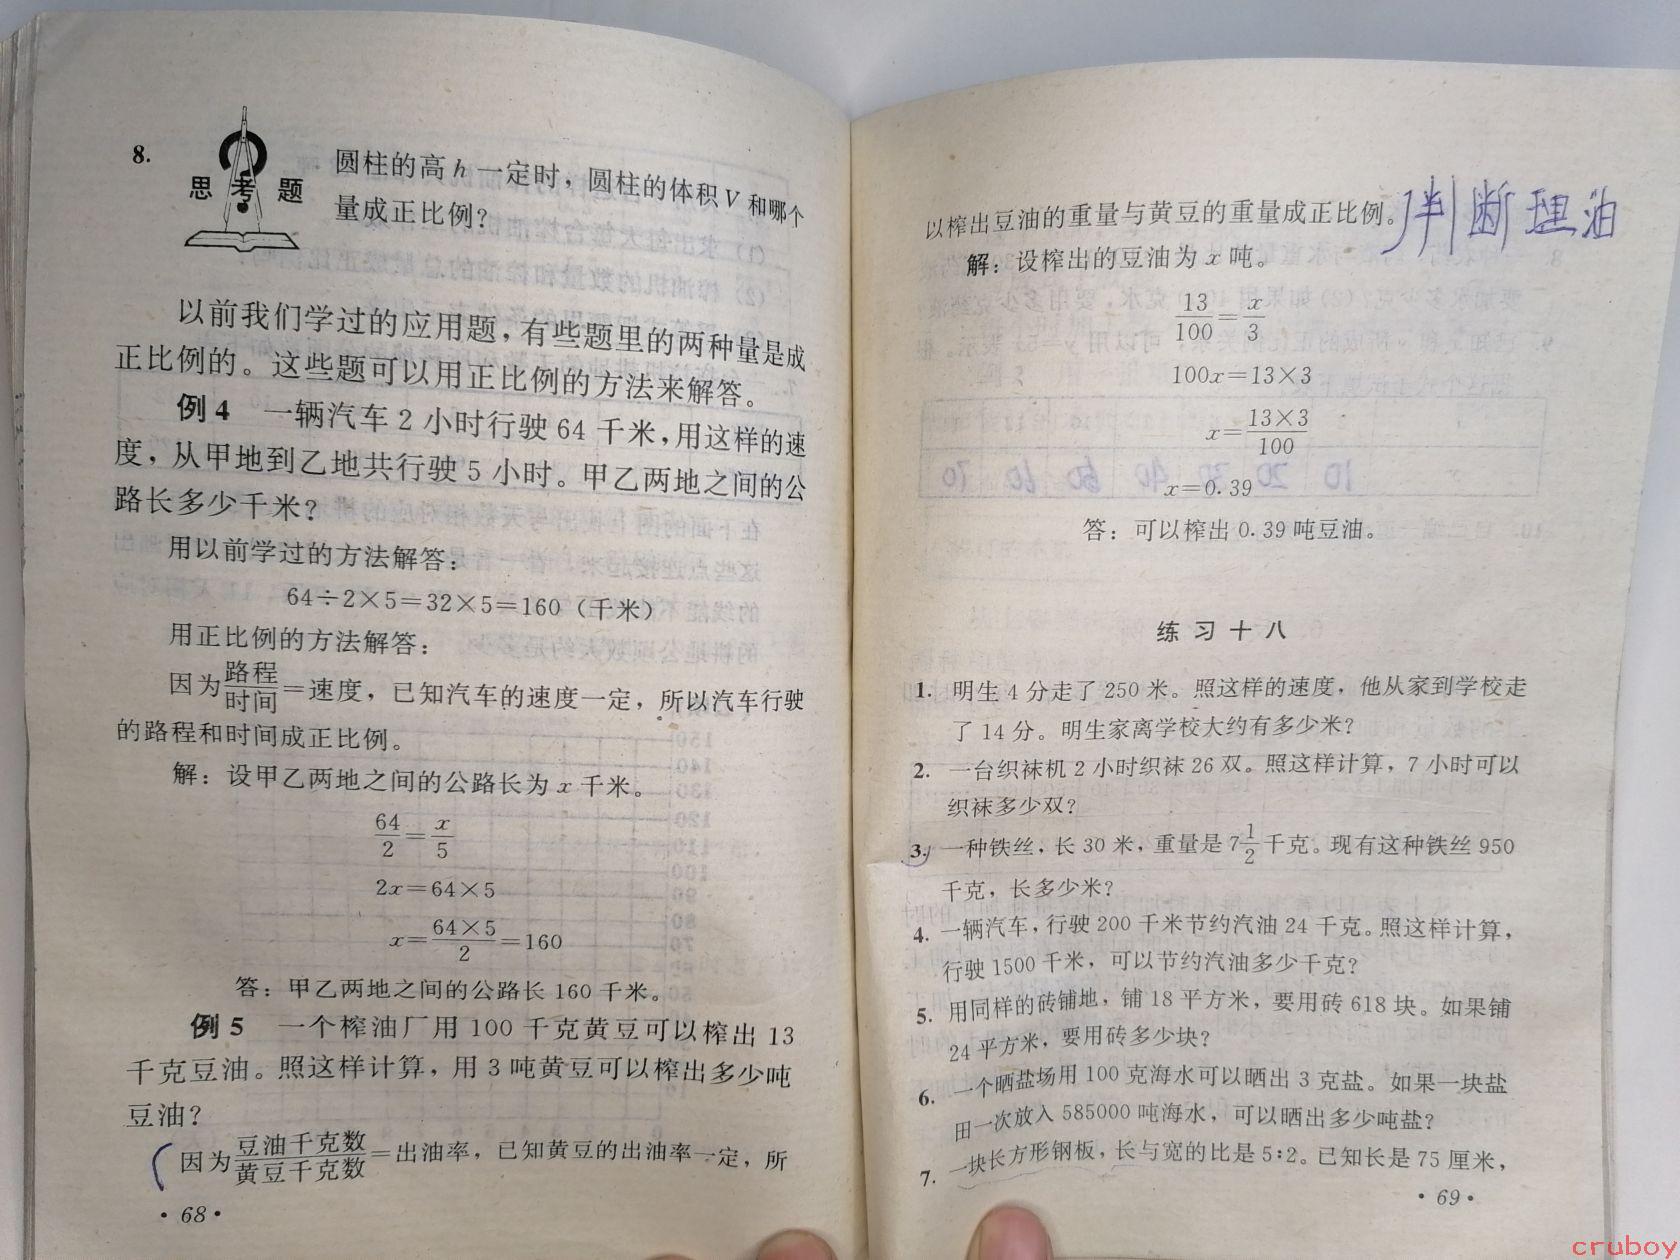 8.
思考题
圆柱的高 h 一定时，圆柱的体积 V 和哪个
量成正比例？
以前我们学过的应用题，有些题里的两种量是成
正比例的。这些题可以用正比例的方法来解答。
例4 一辆汽车 2 小时行驶 64 千米，用这样的速
度，从甲地到乙地共行驶 5 小时。甲乙两地之间的公
路长多少千米？
用以前学过的方法解答：
64÷2×5=32×5=160（千米）
用正比例的方法解答：
因为路程/时间=速度，已知汽车的速度一定，所以汽车行驶
的路程和时间成正比例。
解：设甲乙两地之间的公路长为 x 千米。
64/2=x/5
2x=64×5
x=64×5/2=160
答：甲乙两地之间的公路长 160 千米。
例5 一个榨油厂用 100 千克黄豆可以榨出 13
千克豆油。照这样计算，用 3 吨黄豆可以榨出多少吨
豆油？
因为豆油千克数/黄豆千克数=出油率，已知黄豆的出油率一定，所
·68·
以榨出豆油的重量与黄豆的重量成正比例。
判断理油
解：设榨出的豆油为 x 吨。
13/100=x/3
100x=13×3
x=13×3/100
x=0.39
答：可以榨出 0.39 吨豆油。
练习十八
1. 明生 4 分走了 250 米。照这样的速度，他从家到学校走
了 14 分。明生家离学校大约有多少米？
2. 一台织袜机 2 小时织袜 26 双。照这样计算，7 小时可以
织袜多少双？
3. 一种铁丝，长 30 米，重量是 7 1/2 千克。现有这种铁丝 950
千克，长多少米？
4. 一辆汽车，行驶 200 千米节约汽油 24 千克。照这样计算，
行驶 1500 千米，可以节约汽油多少千克？
5. 用同样的砖铺地，铺 18 平方米，要用砖 618 块。如果铺
24 平方米，要用砖多少块？
6. 一个晒盐场用 100 克海水可以晒出 3 克盐。如果一块盐
田一次放入 585000 吨海水，可以晒出多少吨盐？
7. 一块长方形钢板，长与宽的比是 5:2。已知长是 75 厘米，
·69·
cruboy